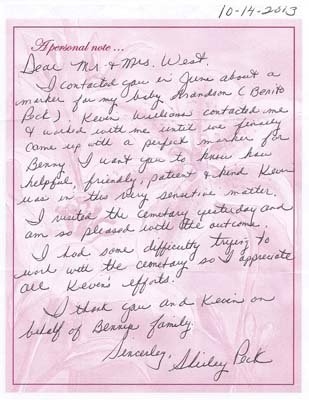 10-14-2013
A personal note ...
Dear Mr & Mrs. West.
I contacted you in June about a
marker for my baby Grandson (Benito
Peck). Kevin Williams contacted me
& worked with me until we finally
came up with a perfect marker for
Benny. I want you to know how
helpful, friendly, patient & kind Kevin
was in this very sensitive matter.
I visited the cemetary yesterday and
am so pleased with the outcome.
I had some difficulty trying to
work with the cemetary so I appreciate
all Kevin's efforts.
I thank you and Kevin on
behalf of Bennys family.
Sincerley,
Shirley Peck